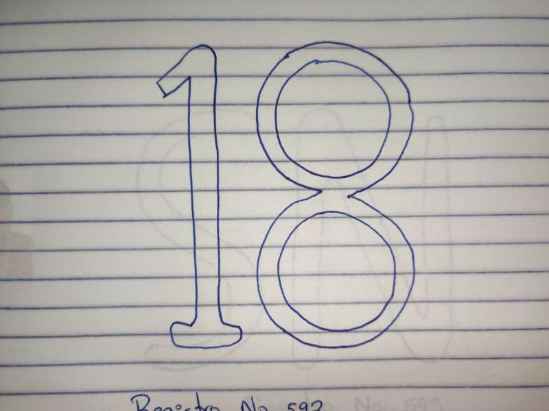 18
Registro No 592